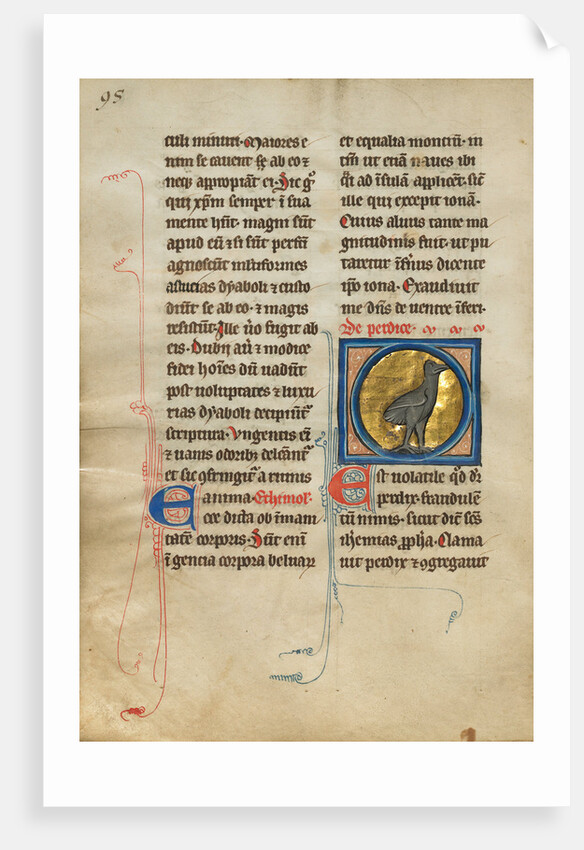 95
culi minuti. Maiores e
nim se cauent se ab eo ⁊
neqꝫ appropiant ei. Sic gͦ
qui xp̄m semper ī sua
mente hn̄t. magni sūt
apud eū ⁊ si sūt perfcī
agnoscūt ml̄tiformes
astucias dyaboli ⁊ custo
diūt se ab eo. ⁊ magis
resistūt. Ille ū̊o fugit ab
eis. Dubii aūt ⁊ modice
fidei hoīes dū uadūt
post uoluptates ⁊ luxu
rias dyaboli decipiūtᷣ
scriptura. Vngentis eī
⁊ uariis odoribꝫ delcānt᷑
et sic ꝯfringit᷑ a ruinis
anima. Ethimoł.
Cete dicta ob īmani
tatē corporis. Sūt enī
īgencia corpora beluaꝝ
et equalia montiū. in
tm̄ ut etiā naues ibi
q̄i ad īsulā applicēt. sic̄
ille qui excepit ionā.
Cuius aluus tante ma
gnitudinis fuit. ut pu
taretur īfern̄s dicente
ip̄o iona. Exaudiuit
me dn̄s de uentre īferi.
De perdice.
Est uolatile q̊d dr̄
perdix. fraudulē
tū nimis. sicut dic̄t sc̄s
ihemias ꝓph̄a. Clama
uit perdix ⁊ ꝯgregauit